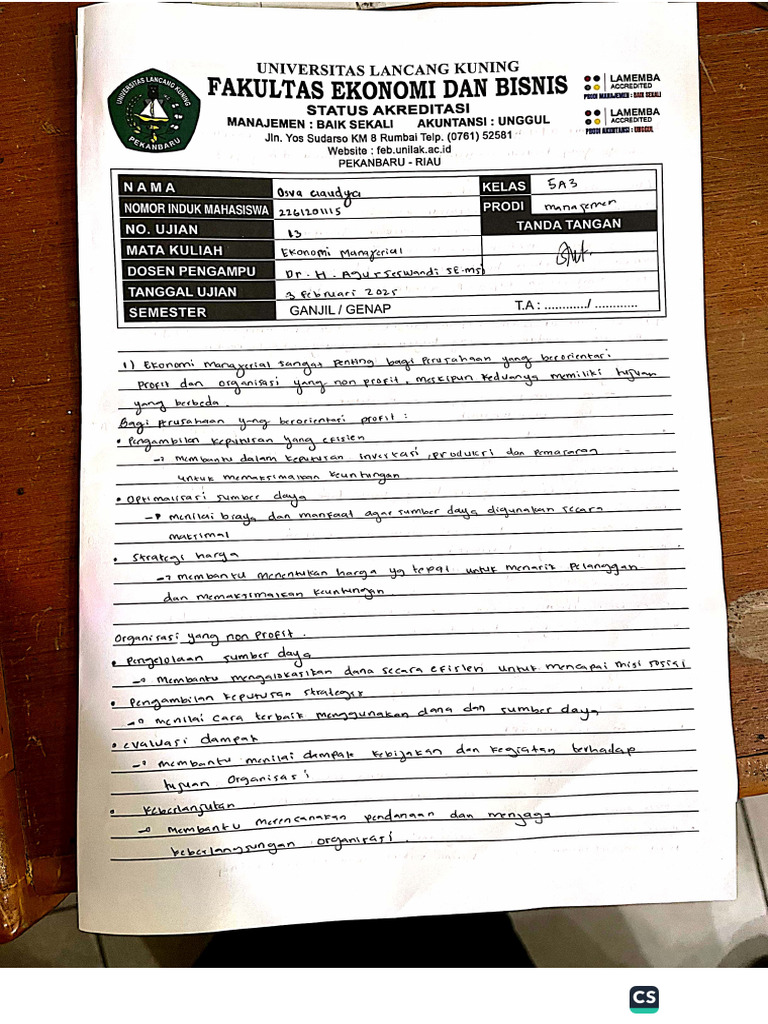 UNIVERSITAS LANCANG KUNING
PEKANBARU
UNIVERSITAS LANCANG KUNING
FAKULTAS EKONOMI DAN BISNIS
STATUS AKREDITASI
MANAJEMEN : BAIK SEKALI AKUNTANSI : UNGGUL
Jln. Yos Sudarso KM 8 Rumbai Telp. (0761) 52581
Website : feb.unilak.ac.id
PEKANBARU - RIAU
LAMEMBA
ACCREDITED
PRODI MANAJEMEN : BAIK SEKALI
LAMEMBA
ACCREDITED
PRODI AKUNTANSI : UNGGUL
NAMA Osva Claudya KELAS 5A3
NOMOR INDUK MAHASISWA 2261201115 PRODI manajemen
NO. UJIAN 13 TANDA TANGAN
MATA KULIAH Ekonomi Manajerial
DOSEN PENGAMPU Dr. H. Agus Seswandi SE.Msi
TANGGAL UJIAN 3 Februari 2025
SEMESTER GANJIL / GENAP T.A : ............/ ............
1) Ekonomi Manajerial sangat penting bagi perusahaan yang berorientasi
profit dan organisasi yang non profit, meskipun keduanya memiliki tujuan
yang berbeda.
Bagi perusahaan yang berorientasi profit :
• Pengambilan keputusan yang efisien
→ membantu dalam keputusan investasi, produksi dan pemasaran
untuk memaksimalkan keuntungan
• Optimalisasi sumber daya
→ menilai biaya dan manfaat agar sumber daya digunakan secara
maksimal
• Strategi harga
→ membantu menentukan harga yg tepat untuk menarik pelanggan
dan memaksimalkan keuntungan.
Organisasi yang non profit.
• Pengelolaan sumber daya
→ Membantu mengalokasikan dana secara efisien untuk mencapai misi sosial
• Pengambilan keputusan strategis
→ menilai cara terbaik menggunakan dana dan sumber daya
• evaluasi dampak
→ membantu menilai dampak kebijakan dan kegiatan terhadap
tujuan Organisasi
• Keberlanjutan
→ Membantu merencanakan pendanaan dan menjaga
keberlangsungan organisasi.
CS